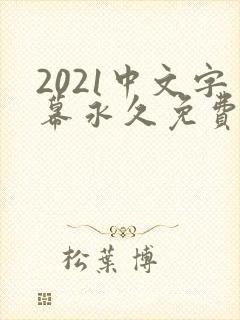 2021中文字
幕永久免費
松葉博